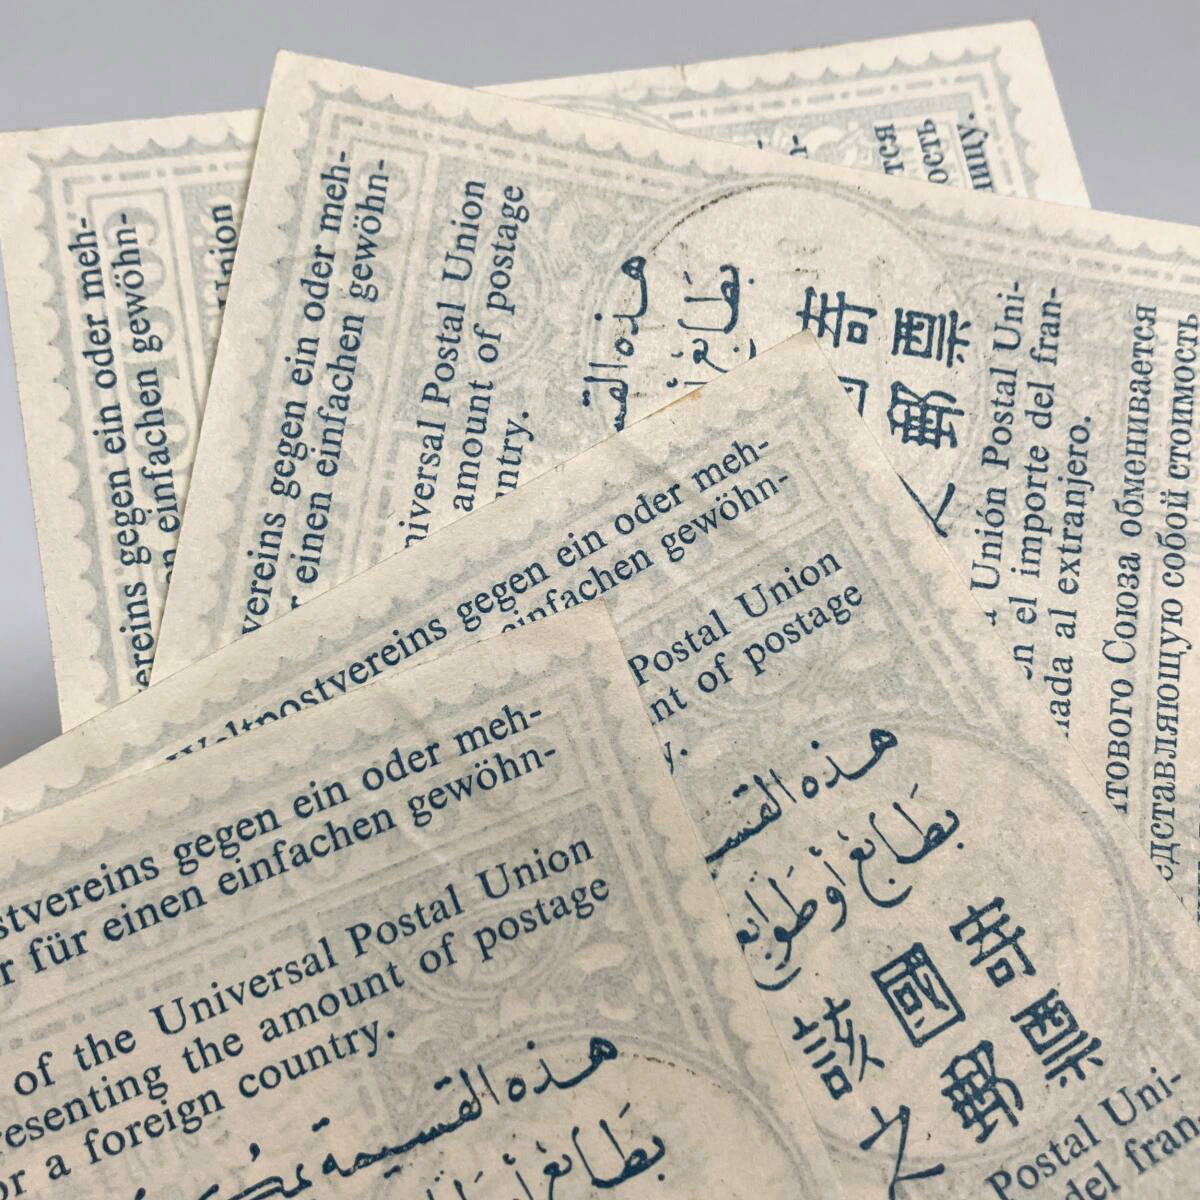 ereins gegen ein oder meh-
n einfachen gewöhn-
Union
тся
ость
ницу.
vereins gegen ein oder meh-
r einen einfachen gewöhn-
niversal Postal Union
amount of postage
ntry.
هذه القس
بطايع
寄
票
郵
之
Unión Postal Uni-
en el importe del fran-
nada al extranjero.
тового Союза обменивается
едставляющую собой стоимость
Weltpostvereins gegen ein oder meh-
einfachen gewöhn-
Postal Union
nt of postage
y.
هذه القسـ
بطايع أو طوابع
寄
國 票
該 郵
之
Postal Uni-
del fran-
stvereins gegen ein oder meh-
r für einen einfachen gewöhn-
of the Universal Postal Union
resenting the amount of postage
or a foreign country.
هذه القسيمة
بطايع أ